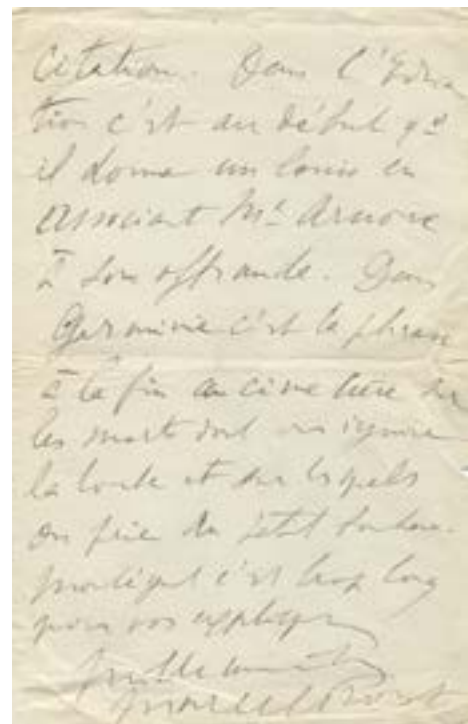 Citation. Dans l'Educa
tion c'est au début qd
il donne un louis en
associant Me Arnoux
à son offrande. Dans
Germinie c'est la phrase
à la fin au cimetière sur
les morts dont on ignore
la tombe et sur lesquels
on prie du petit bonheur.
c'est trop long
pour vous expliquer

Marcel Proust